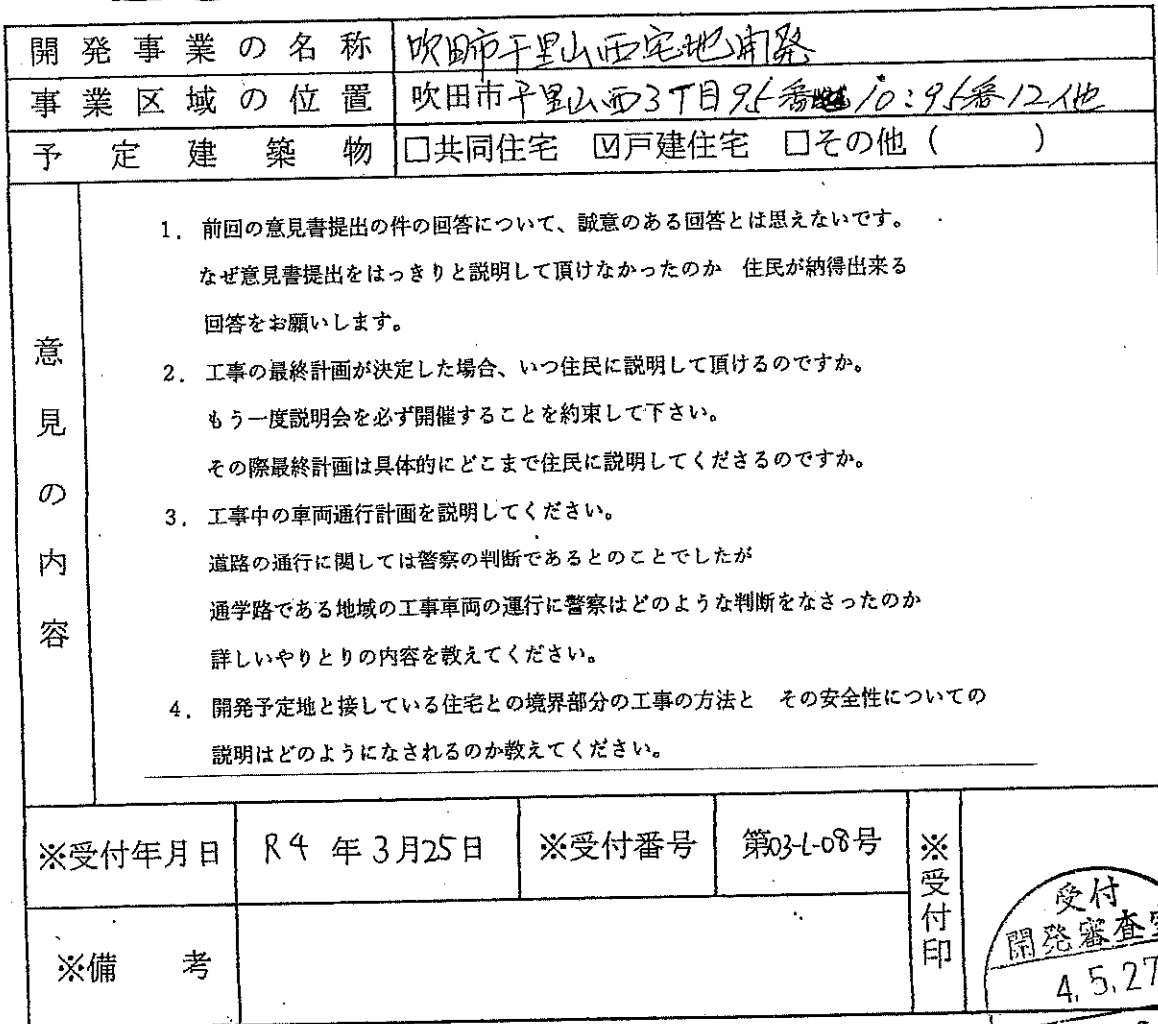 開発事業の名称 吹田市千里山西宅地開発
事業区域の位置 吹田市千里山西3丁目95番10:95番12他
予定建築物 □共同住宅 ☑戸建住宅 □その他（　　）
意見の内容
1. 前回の意見書提出の件の回答について、誠意のある回答とは思えないです。
なぜ意見書提出をはっきりと説明して頂けなかったのか 住民が納得出来る
回答をお願いします。
2. 工事の最終計画が決定した場合、いつ住民に説明して頂けるのですか。
もう一度説明会を必ず開催することを約束して下さい。
その際最終計画は具体的にどこまで住民に説明してくださるのですか。
3. 工事中の車両通行計画を説明してください。
道路の通行に関しては警察の判断であるとのことでしたが
通学路である地域の工事車両の運行に警察はどのような判断をなさったのか
詳しいやりとりの内容を教えてください。
4. 開発予定地と接している住宅との境界部分の工事の方法と その安全性についての
説明はどのようになされるのか教えてください。
※受付年月日 R4年3月25日 ※受付番号 第03-L-08号 ※受付印
※備考
受付
開発審査室
4.5.27